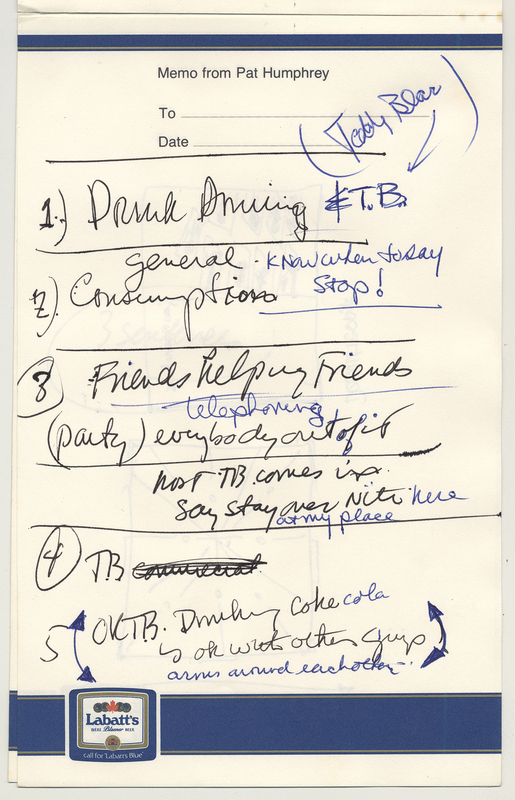 Memo from Pat Humphrey
To
Date
(Teddy Bear)
1.) Drunk Driving & T.B.
general. Know when to say
Stop!
2). Consumption
3 Friends helping Friends
telephoning
(party) everybody out of it
host TB comes in.
Say stay over Nite here
at my place
4 TB commercial
5 OK TB. Drinking Coke cola
is ok with other guys
arms around each other.
Labatt's
Blue
call for 'Labatt's Blue'